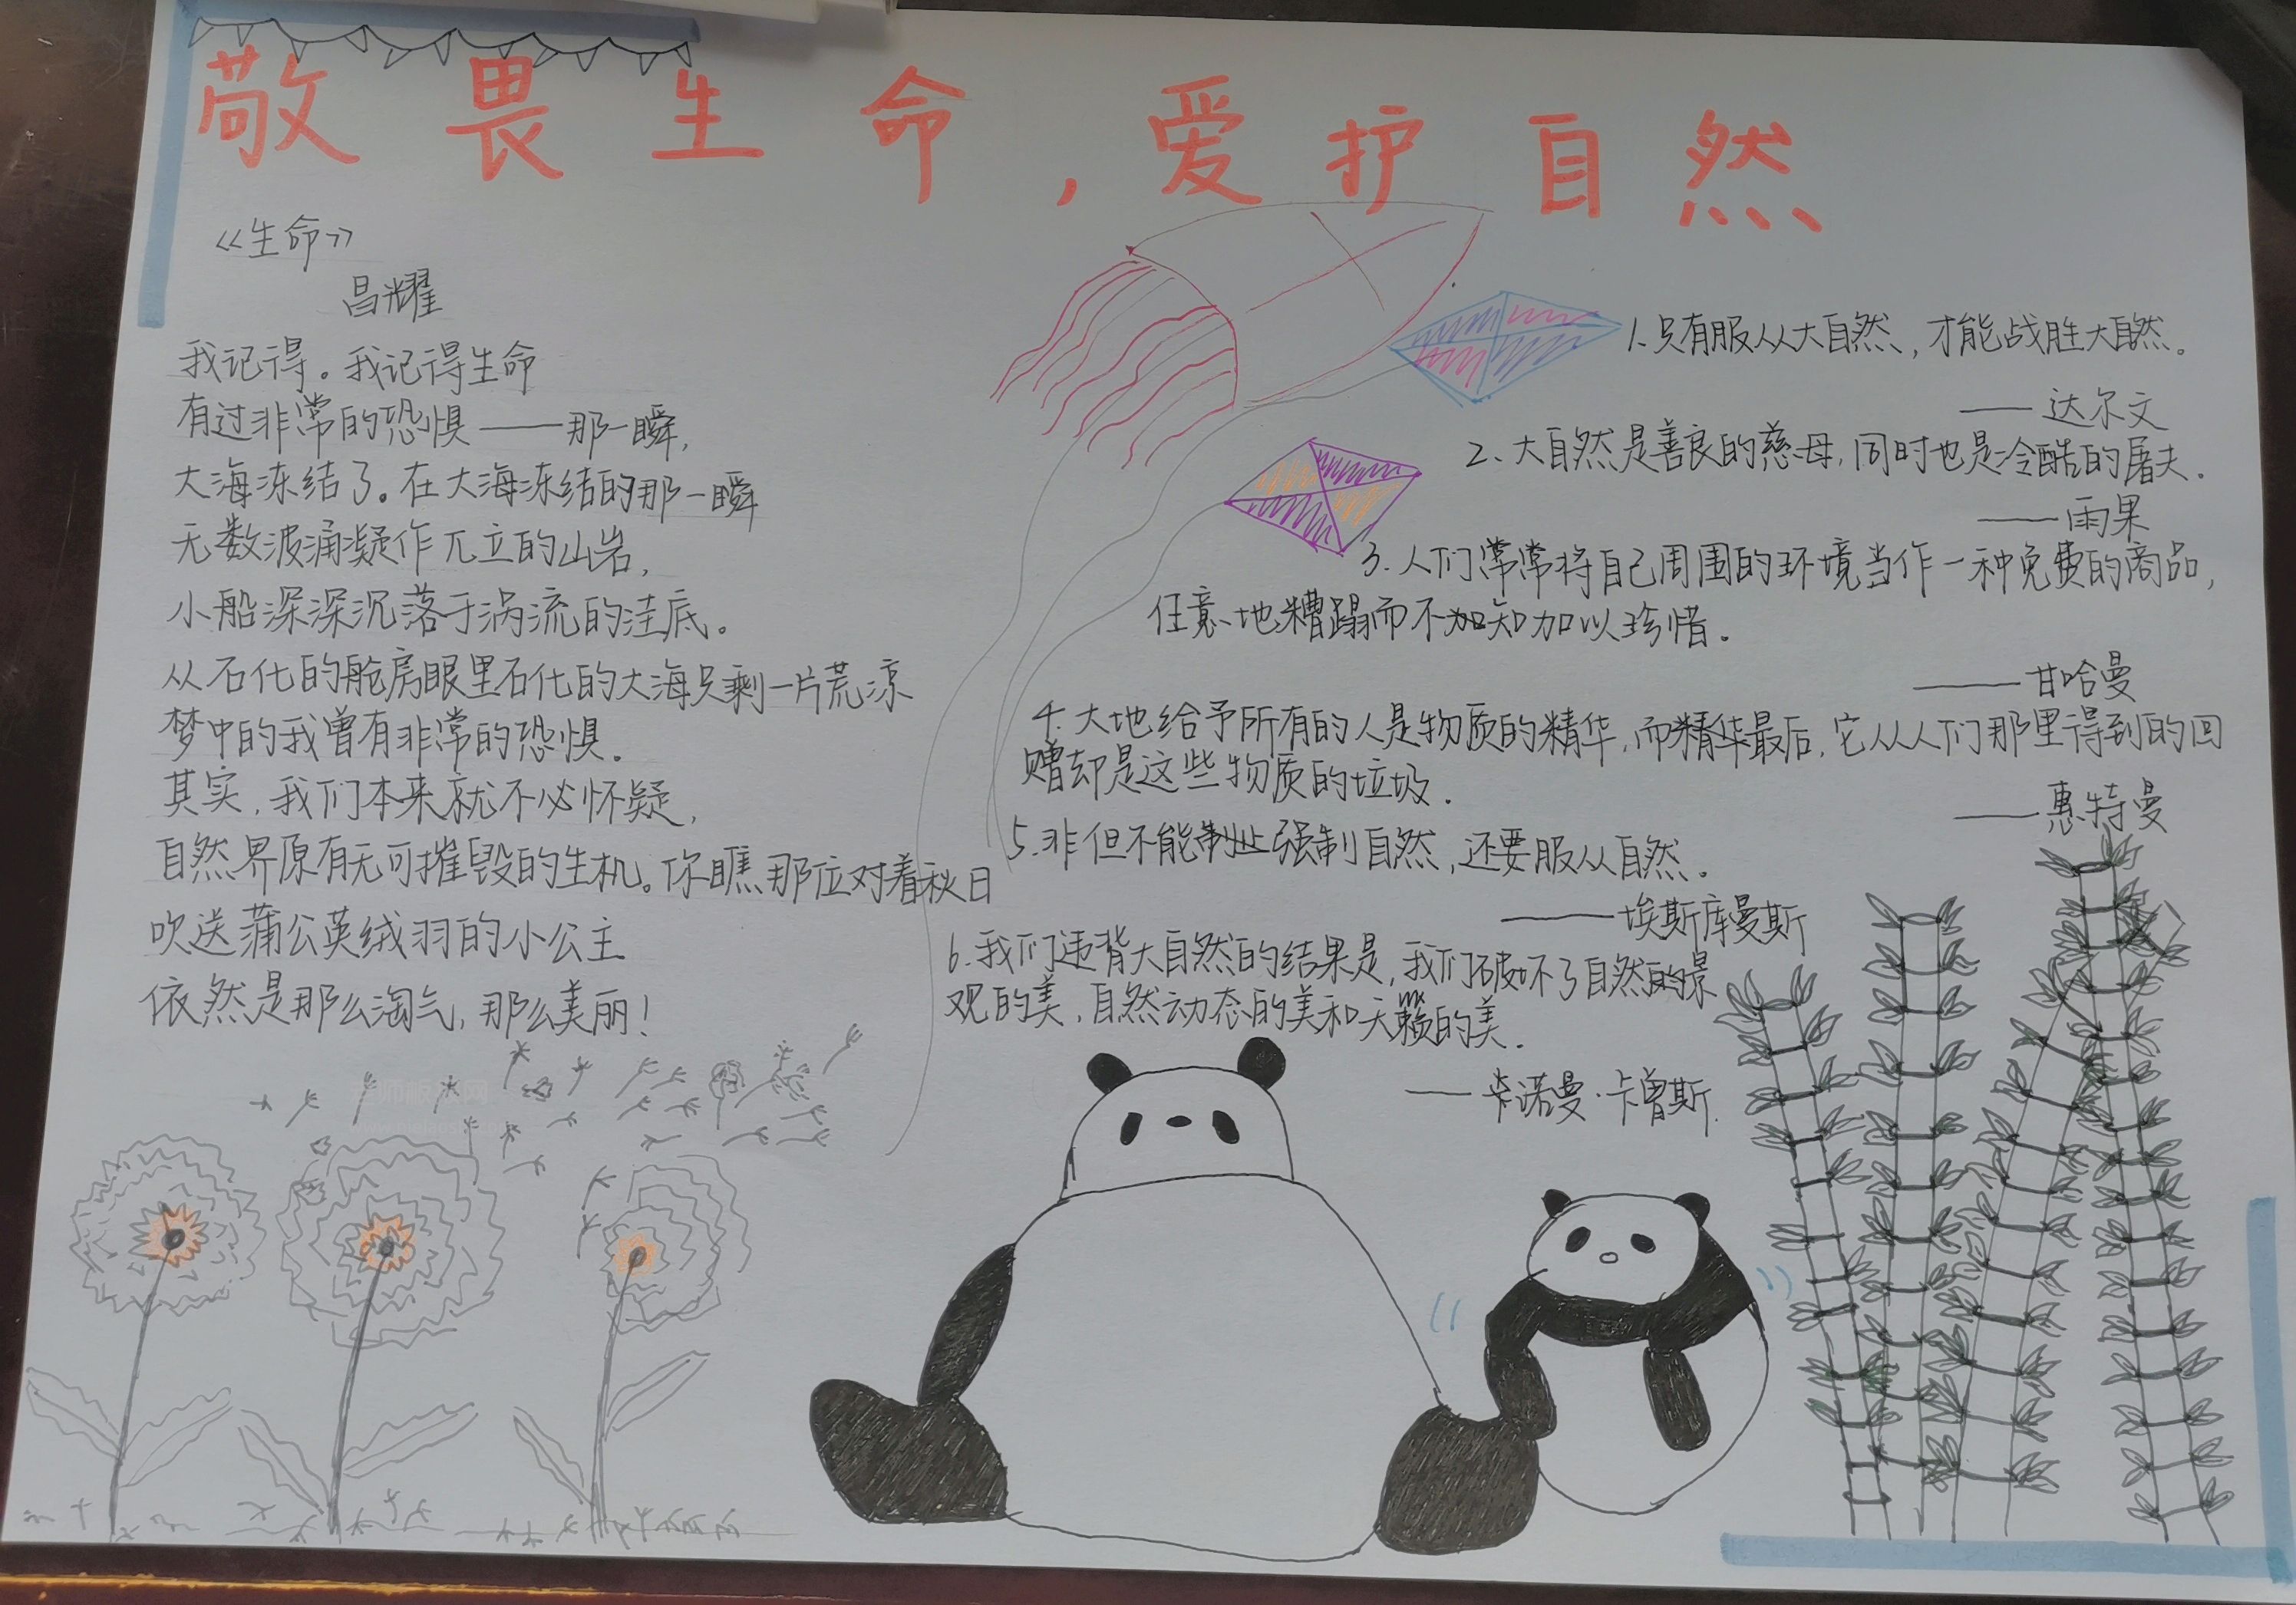 敬畏生命，爱护自然
《生命》
昌耀
我记得。我记得生命
有过非常的恐惧——那一瞬，
大海冻结了。在大海冻结的那一瞬
无数波涌凝作兀立的山岩，
小船深深沉落于涡流的洼底。
从石化的舱房眼里石化的大海只剩一片荒凉
梦中的我曾有非常的恐惧。
其实，我们本来就不必怀疑，
自然界原有无可摧毁的生机。你瞧那位对着秋日
吹送蒲公英绒羽的小公主
依然是那么淘气，那么美丽！
1.只有服从大自然，才能战胜大自然。
——达尔文
2、大自然是善良的慈母，同时也是冷酷的屠夫.
——雨果
3.人们常常将自己周围的环境当作一种免费的商品，
任意地糟蹋而不知加以珍惜.
——甘哈曼
4.大地给予所有的人是物质的精华，而精华最后，它从人们那里得到的回
赠却是这些物质的垃圾.
——惠特曼
5.非但不能强制自然，还要服从自然.
——埃斯库曼斯
6.我们违背大自然的结果是，我们破坏了自然的景
观的美，自然动态的美和天籁的美.
——诺曼·卡曾斯.